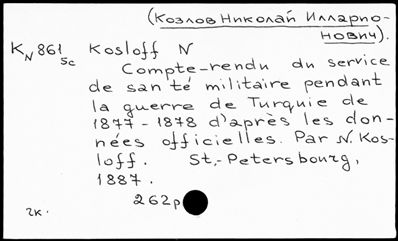 (Козлов Николай Илларио-
нович).
KN 861 5c Kosloff N
Compte-rendu du service
de santé militaire pendant
la guerre de Turquie de
1877-1878 d'après les don-
nées officielles. Par N. Kos-
loff. St.-Petersbourg,
1887.
262p
2к.